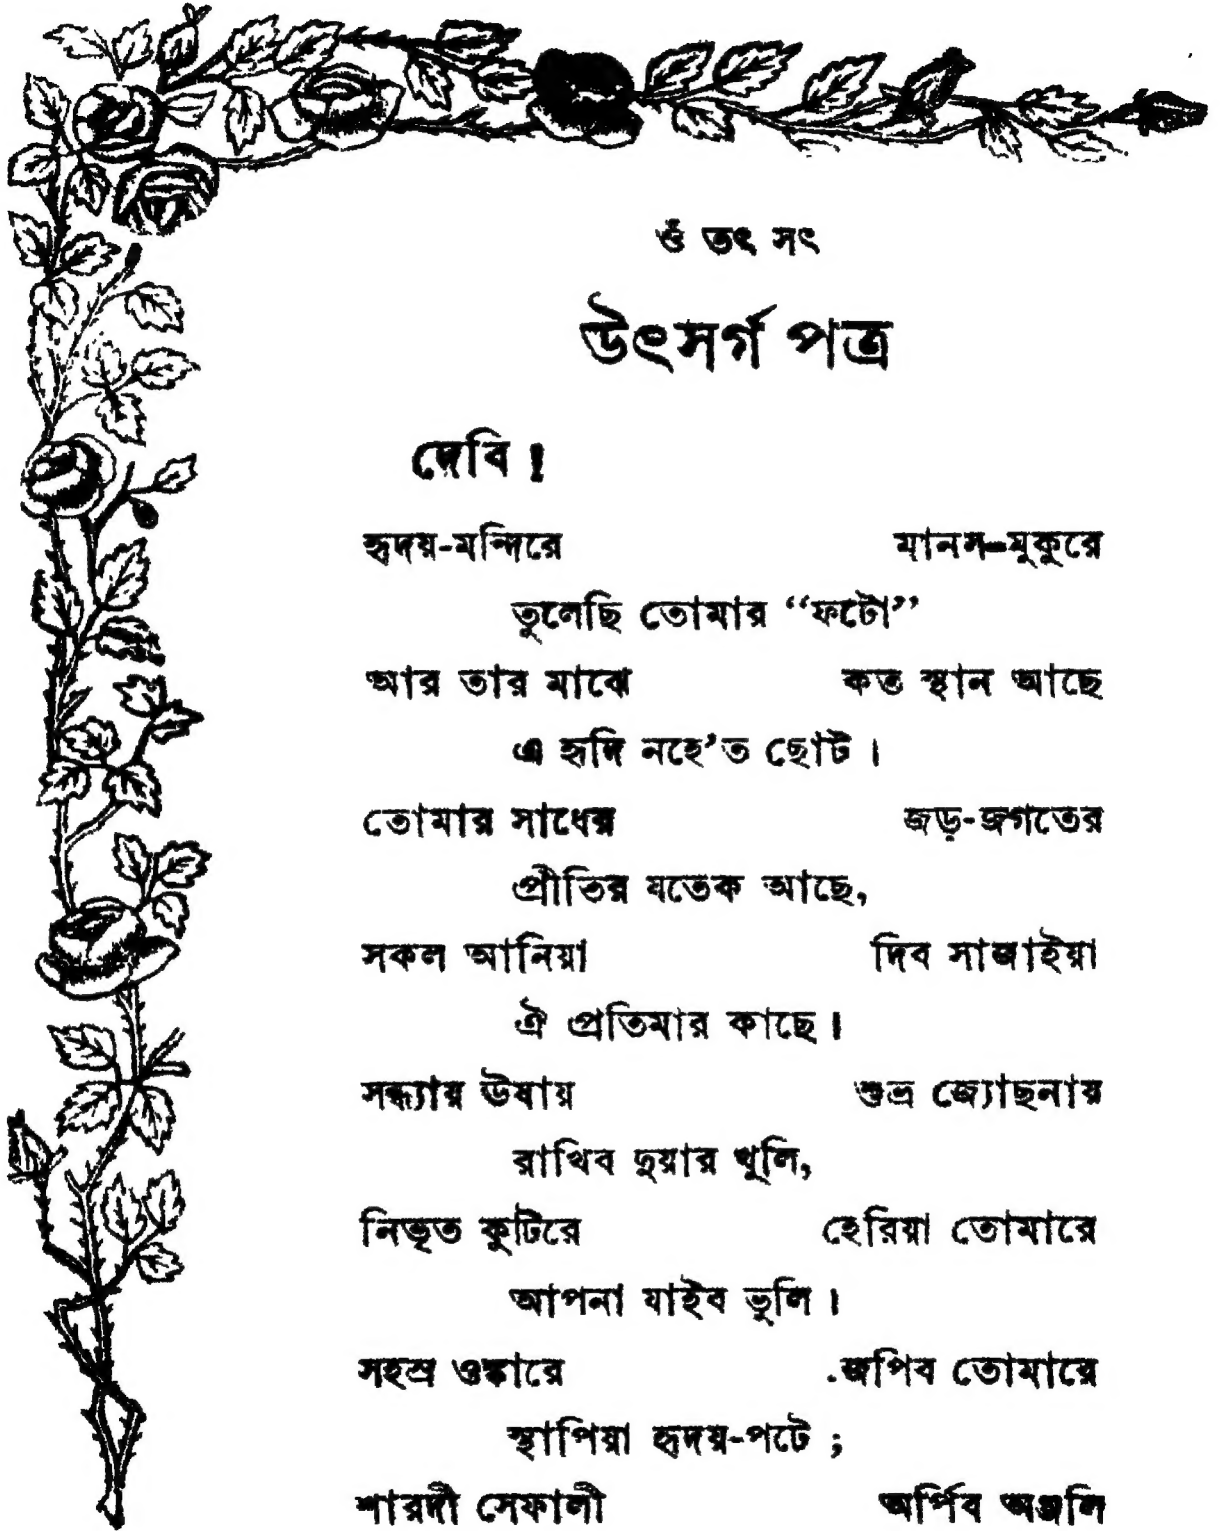 ওঁ তৎ সৎ
উৎসর্গ পত্র
দেবি !
হৃদয়-মন্দিরে মানস-মুকুরে
তুলেছি তোমার “ফটো”
আর তার মাঝে কত স্থান আছে
এ হৃদি নহে’ত ছোট ।
তোমার সাধের জড়-জগতের
প্রীতির যতেক আছে,
সকল আনিয়া দিব সাজাইয়া
ঐ প্রতিমার কাছে ।
সন্ধ্যায় ঊষায় শুভ্র জ্যোছনায়
রাখিব দুয়ার খুলি,
নিভৃত কুটিরে হেরিয়া তোমারে
আপনা যাইব ভুলি ।
সহস্র ওঙ্কারে জপিব তোমারে
স্থাপিয়া হৃদয়-পটে ;
শারদী সেফালী অর্পিব অঞ্জলি